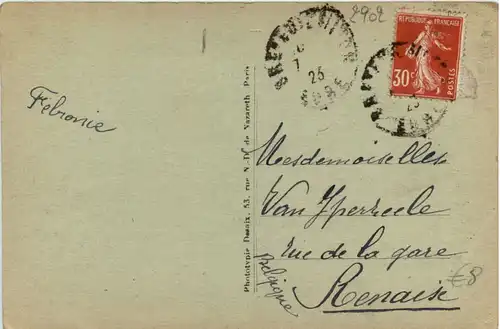 2902
RÉPUBLIQUE FRANÇAISE
30c
POSTES
25
Febronie
Phototypie Desaix, 53, rue N.-D. de Nazareth Paris
Mesdemoiselles
Van Yperzeele
rue de la gare
Renaise
Belgique
€8